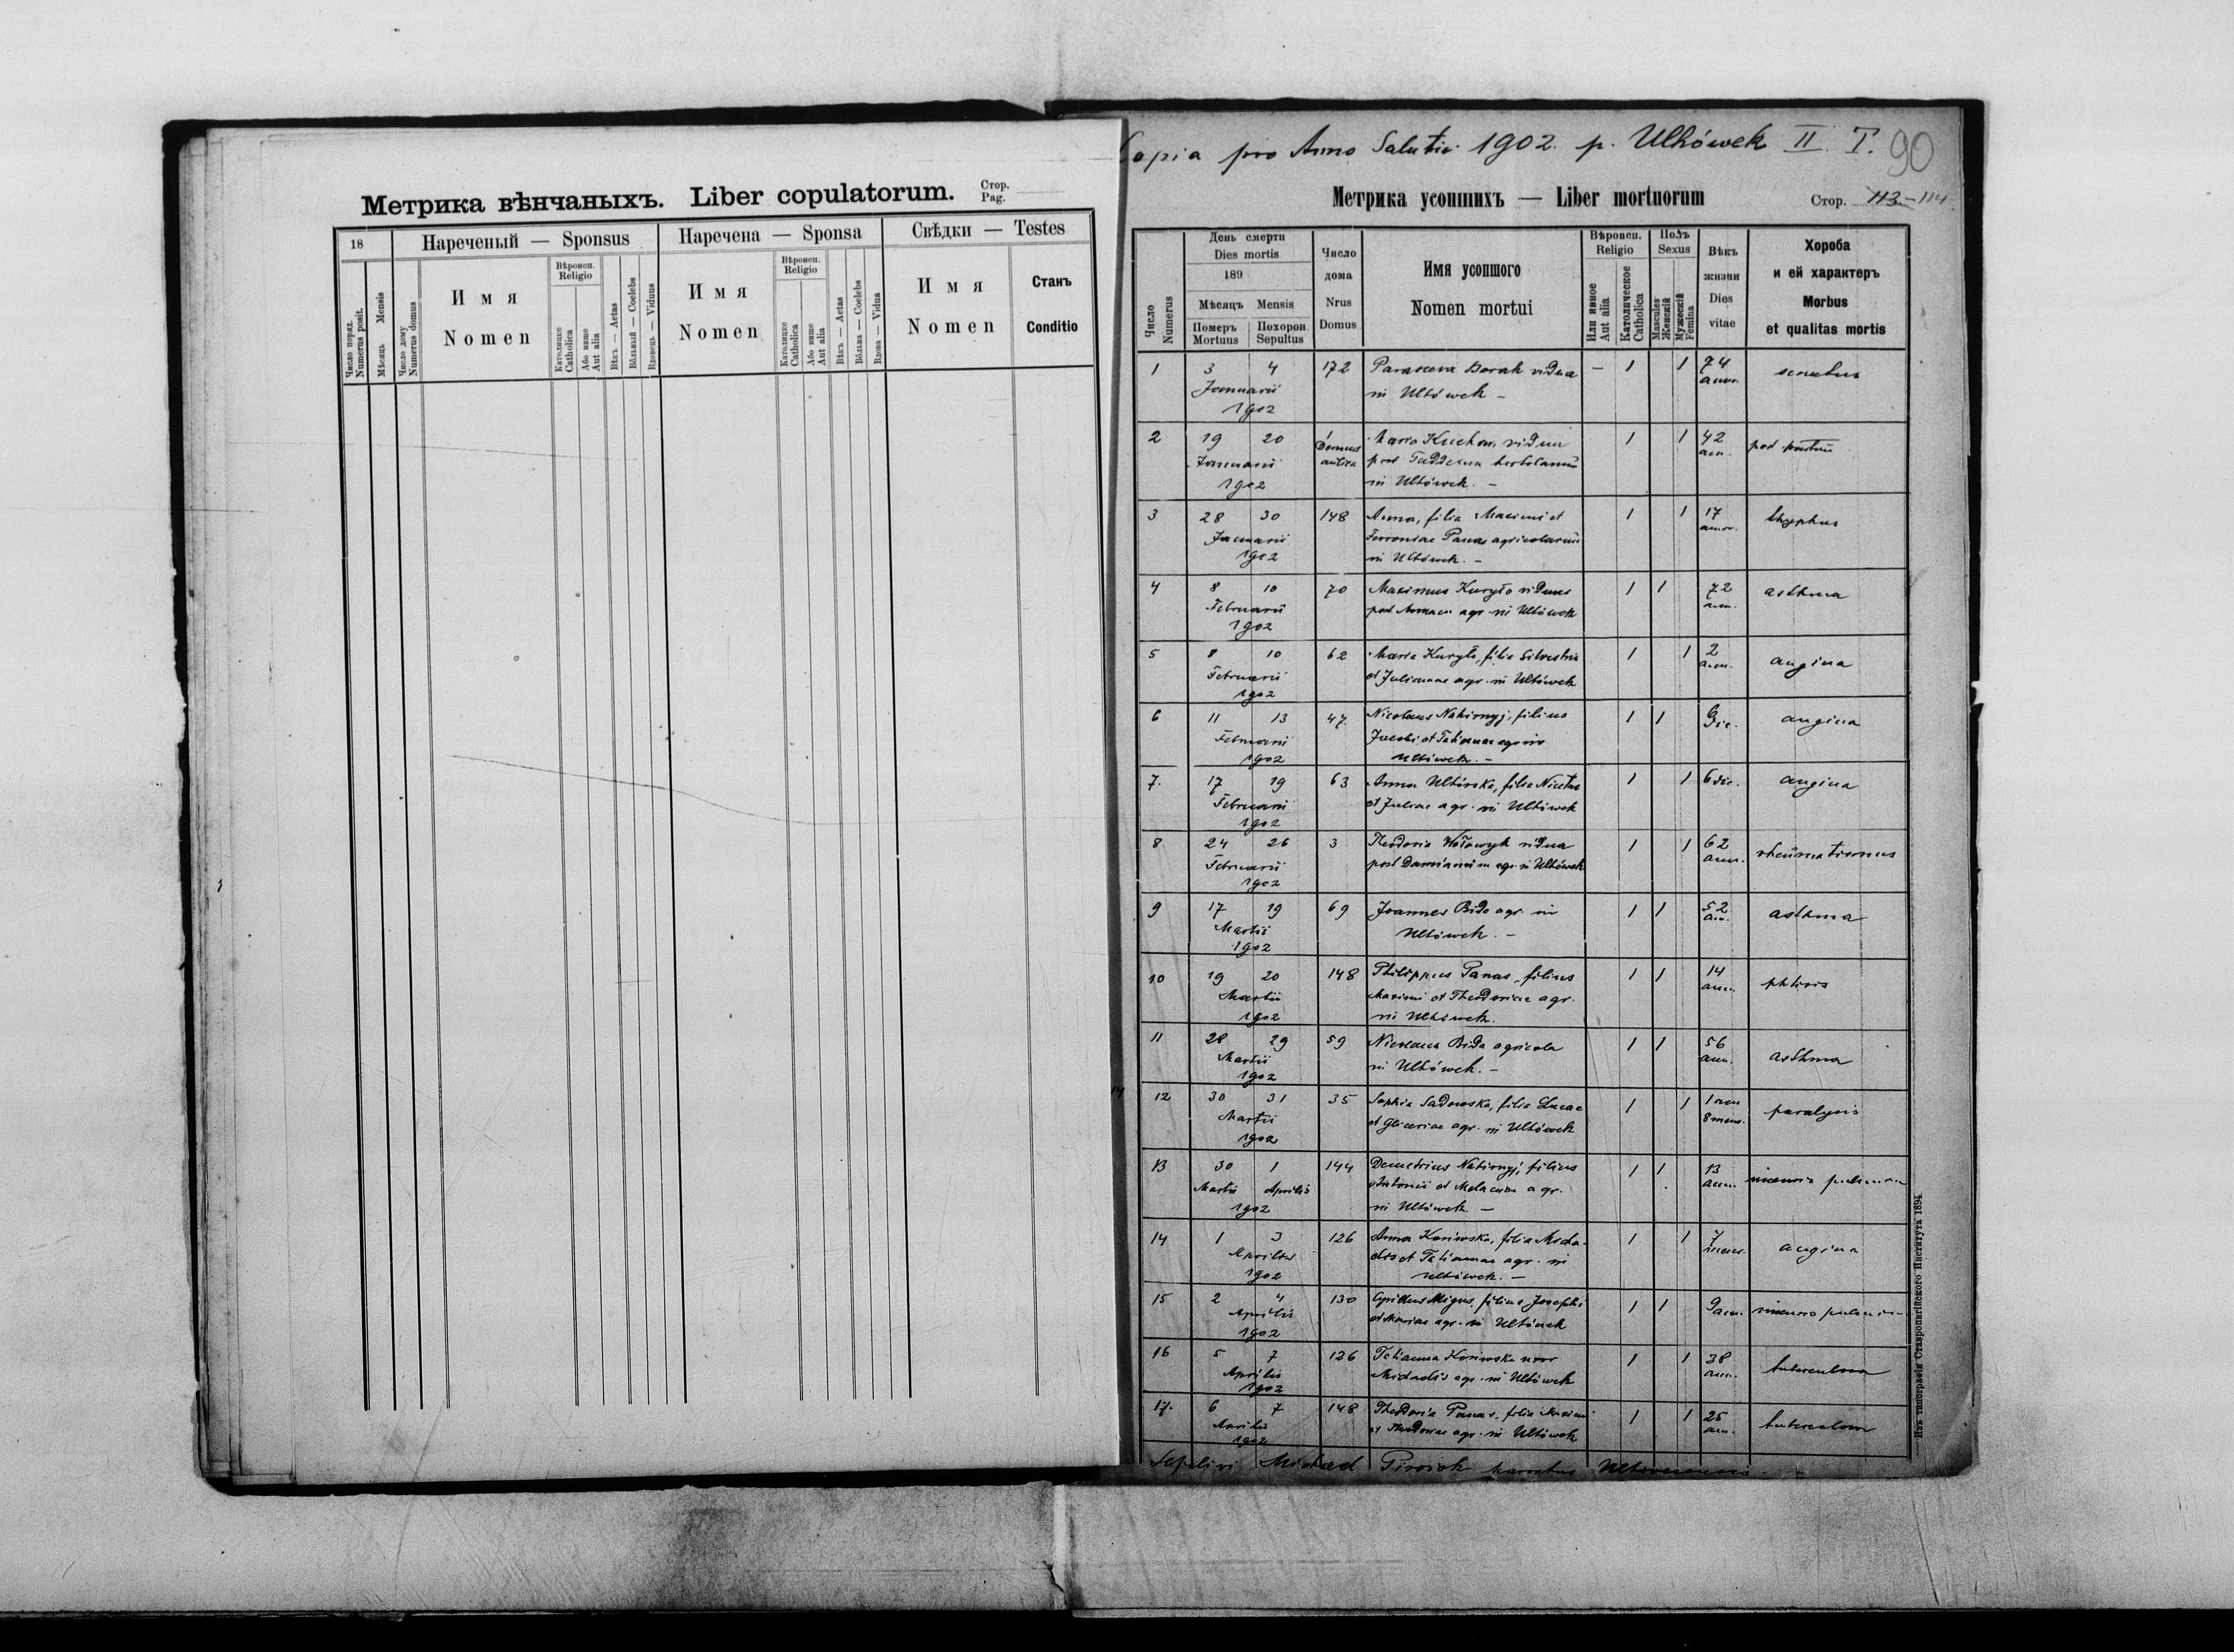 Метрика вѣнчаныхъ. Liber copulatorum. Стор. Pag.
18
Нареченый — Sponsus
Наречена — Sponsa
Свѣдки — Testes
Число поряд. Numerus posit.
Мѣсяць Mensis
Число дому Numerus domus
Имя
Nomen
Вѣроисп. Religio
Католицке Catholica
Або инше Aut alia
Вѣкъ — Aetas
Вôльный — Coelebs
Вдовець — Viduus
Имя
Nomen
Вѣроисп. Religio
Католицке Catholica
Або инше Aut alia
Вѣкъ — Aetas
Вôльна — Coelebs
Вдова — Vidua
Имя
Nomen
Станъ
Conditio
Copia pro Anno Salutis 1902. p. Uhhówek II. T. 90
Метрика усопшихъ — Liber mortuorum Стор. 113-114
Число Numerus
День смерти
Dies mortis
189
Мѣсяцъ Mensis
Померъ Mortuus
Похорон. Sepultus
Число
дома
Nrus
Domus
Имя усопшого
Nomen mortui
Вѣроисп. Religio
Или инное Aut alia
Католическое Catholica
Полъ Sexus
Masculus Женскій
Мужескій Femina
Вѣкъ
жизни
Dies
vitae
Хороба
и ей характеръ
Morbus
et qualitas mortis
1 3 4 172 Parasceva Borak vidua — 1 1 74 senectus
Januarii in Uhhówek – ann.
1902
2 19 20 1 Maria Kuchar, vidua 1 1 42 post partum
Januarii Domus post Taddeum hortolanum ann.
1902 in Uhhówek. –
3 28 30 148 Anna, filia Maximi et 1 1 17 thyphus
Januarii Panas agricolarum annor.
1902 in Uhhówek. –
4 8 10 70 Maximus Kuryło viduus 1 1 72 asthma
Februarii post Annam agr. in Uhhówek ann.
1902
5 8 10 62 Maria Kuryło, filia Silvestri 1 1 2 angina
Februarii et Julianae agr. in Uhhówek ann.
1902
6 11 13 47 Nicolaus Nahirnyj, filius 1 1 angina
Februarii Jacobi et Tatianae
1902 Uhhówek. –
7. 17 19 63 Anna Uhhówska, filia Nicetae 1 1 6 angina
Februarii et Juliae agr. in Uhhówek
1902
8 24 26 3 Theodosia Wołowyk vidua 1 1 62 rheumatismus
Februarii post Damianum agr. in Uhhówek ann.
1902
9 17 19 69 Joannes Bida agr. in 1 1 52 asthma
Martii Uhhówek. – ann.
1902
10 19 20 148 Philippus Panas, filius 1 1 14 phtisis
Martii Maximi et Theodosiae agr. ann.
1902 in Uhhówek.
11 28 29 59 Nicolaus Bida agricola 1 1 56 asthma
Martii in Uhhówek. – ann.
1902
12 30 31 35 Sophia Sadowska, filia Lucae 1 1 1 ann paralysis
Martii et Gliceriae agr. in Uhhówek 8 mens.
1902
13 30 1 144 Demetrius Nahirnyj, filius 1 1 13
Martii Aprilis Antonii et Melaniae agr. ann.
1902 in Uhhówek. –
14 1 3 126 Anna Kosiwska, filia 1 1 7 angina
Aprilis et Tatianae agr. in mens.
1902 Uhhówek. –
15 2 4 130 Cyrillus Migus, filius Josephi 1 1 9 ann.
Aprilis et Mariae agr. in Uhhówek
1902
16 5 7 126 Tatianna Kosiwska uxor 1 1 38 tuberculosa
Aprilis agr. in Uhhówek ann.
1902
17. 6 7 148 Theodosia Panas, filia Maximi 1 1 25 tuberculosa
Aprilis et Theodosiae agr. in Uhhówek ann.
1902
Sepelivi Michael Parochus
Изъ типографіи Ставропигійского Института 1894